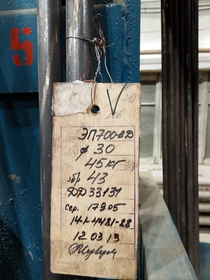 5
V
ЭП700-ВД
ф 30
45 кг
обр 43
ФДФ 33131
сер. 17905
14-1-4481-88
12 03 13